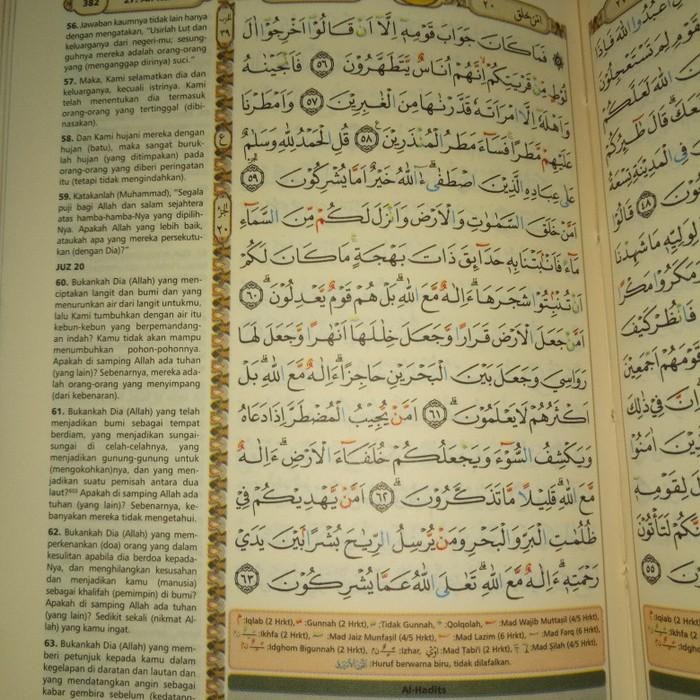 382
56. Jawaban kaumnya tidak lain hanya
dengan mengatakan, "Usirlah Lut dan
keluarganya dari negeri-mu; sesung-
guhnya mereka adalah orang-orang
yang (menganggap dirinya) suci."
57. Maka, Kami selamatkan dia dan
keluarganya, kecuali istrinya. Kami
telah menentukan dia termasuk
orang-orang yang tertinggal (dibi-
nasakan).
58. Dan Kami hujani mereka dengan
hujan (batu), maka sangat buruk-
lah hujan (yang ditimpakan) pada
orang-orang yang diberi peringatan
itu (tetapi tidak mengindahkan).
59. Katakanlah (Muhammad), "Segala
puji bagi Allah dan salam sejahtera
atas hamba-hamba-Nya yang dipilih-
Nya. Apakah Allah yang lebih baik,
ataukah apa yang mereka persekutu-
kan (dengan Dia)?"
JUZ 20
60. Bukankah Dia (Allah) yang men-
ciptakan langit dan bumi dan yang
menurunkan air dari langit untukmu,
lalu Kami tumbuhkan dengan air itu
kebun-kebun yang berpemandang-
an indah? Kamu tidak akan mampu
menumbuhkan pohon-pohonnya.
Apakah di samping Allah ada tuhan
(yang lain)? Sebenarnya, mereka ada-
lah orang-orang yang menyimpang
(dari kebenaran).
61. Bukankah Dia (Allah) yang telah
menjadikan bumi sebagai tempat
berdiam, yang menjadikan sungai-
sungai di celah-celahnya, yang
menjadikan gunung-gunung untuk
(mengokohkan)nya, dan yang men-
jadikan suatu pemisah antara dua
laut? Apakah di samping Allah ada
tuhan (yang lain)? Sebenarnya, ke-
banyakan mereka tidak mengetahui.
62. Bukankah Dia (Allah) yang mem-
perkenankan (doa) orang yang dalam
kesulitan apabila dia berdoa kepada-
Nya, dan menghilangkan kesusahan
dan menjadikan kamu (manusia)
sebagai khalifah (pemimpin) di bumi?
Apakah di samping Allah ada tuhan
(yang lain)? Sedikit sekali (nikmat Al-
lah) yang kamu ingat.
63. Bukankah Dia (Allah) yang mem-
beri petunjuk kepada kamu dalam
kegelapan di daratan dan lautan dan
yang mendatangkan angin sebagai
kabar gembira sebelum (kedatang-
فَمَا كَانَ جَوَابَ قَوْمِهٖٓ اِلَّآ اَنْ قَالُوْٓا اَخْرِجُوْٓا اٰلَ
لُوْطٍ مِّنْ قَرْيَتِكُمْ اِنَّهُمْ اُنَاسٌ يَّتَطَهَّرُوْنَ ﴿٥٦﴾ فَاَنْجَيْنٰهُ
وَاَهْلَهٗٓ اِلَّا امْرَاَتَهٗ قَدَّرْنٰهَا مِنَ الْغٰبِرِيْنَ ﴿٥٧﴾ وَاَمْطَرْنَا
عَلَيْهِمْ مَّطَرًا فَسَاۤءَ مَطَرُ الْمُنْذَرِيْنَ ﴿٥٨﴾ قُلِ الْحَمْدُ لِلّٰهِ وَسَلٰمٌ
عَلٰى عِبَادِهِ الَّذِيْنَ اصْطَفٰىۗ ءٰۤاللّٰهُ خَيْرٌ اَمَّا يُشْرِكُوْنَ ﴿٥٩﴾
اَمَّنْ خَلَقَ السَّمٰوٰتِ وَالْاَرْضَ وَاَنْزَلَ لَكُمْ مِّنَ السَّمَاۤءِ
مَاۤءً فَاَنْۢبَتْنَا بِهٖ حَدَاۤئِقَ ذَاتَ بَهْجَةٍ مَا كَانَ لَكُمْ
اَنْ تُنْۢبِتُوْا شَجَرَهَاۗ ءَاِلٰهٌ مَّعَ اللّٰهِ بَلْ هُمْ قَوْمٌ يَّعْدِلُوْنَ ﴿٦٠﴾
اَمَّنْ جَعَلَ الْاَرْضَ قَرَارًا وَّجَعَلَ خِلٰلَهَآ اَنْهٰرًا وَّجَعَلَ لَهَا
رَوَاسِيَ وَجَعَلَ بَيْنَ الْبَحْرَيْنِ حَاجِزًاۗ ءَاِلٰهٌ مَّعَ اللّٰهِ بَلْ
اَكْثَرُهُمْ لَا يَعْلَمُوْنَ ﴿٦١﴾ اَمَّنْ يُّجِيْبُ الْمُضْطَرَّ اِذَا دَعَاهُ
وَيَكْشِفُ السُّوْۤءَ وَيَجْعَلُكُمْ خُلَفَاۤءَ الْاَرْضِۗ ءَاِلٰهٌ
مَّعَ اللّٰهِ قَلِيْلًا مَّا تَذَكَّرُوْنَ ﴿٦٢﴾ اَمَّنْ يَّهْدِيْكُمْ فِيْ
ظُلُمٰتِ الْبَرِّ وَالْبَحْرِ وَمَنْ يُّرْسِلُ الرِّيٰحَ بُشْرًا بَيْنَ يَدَيْ
رَحْمَتِهٖۗ ءَاِلٰهٌ مَّعَ اللّٰهِ تَعٰلَى اللّٰهُ عَمَّا يُشْرِكُوْنَ ﴿٦٣﴾
:Iqlab (2 Hrkt), :Gunnah (2 Hrkt), :Tidak Gunnah, :Qolqolah, :Mad Wajib Muttasil (4/5 Hrkt),
:Ikhfa (2 Hrkt), :Mad Jaiz Munfasil (4/5 Hrkt), :Mad Lazim (6 Hrkt), :Mad Farq (6 Hrkt),
:Idghom Bigunnah (2 Hrkt), :Izhar, :Mad Tabi'i (2 Hrkt), :Mad Silah (4/5 Hrkt),
:Huruf berwarna biru, tidak dilafalkan.
Al-Hadits